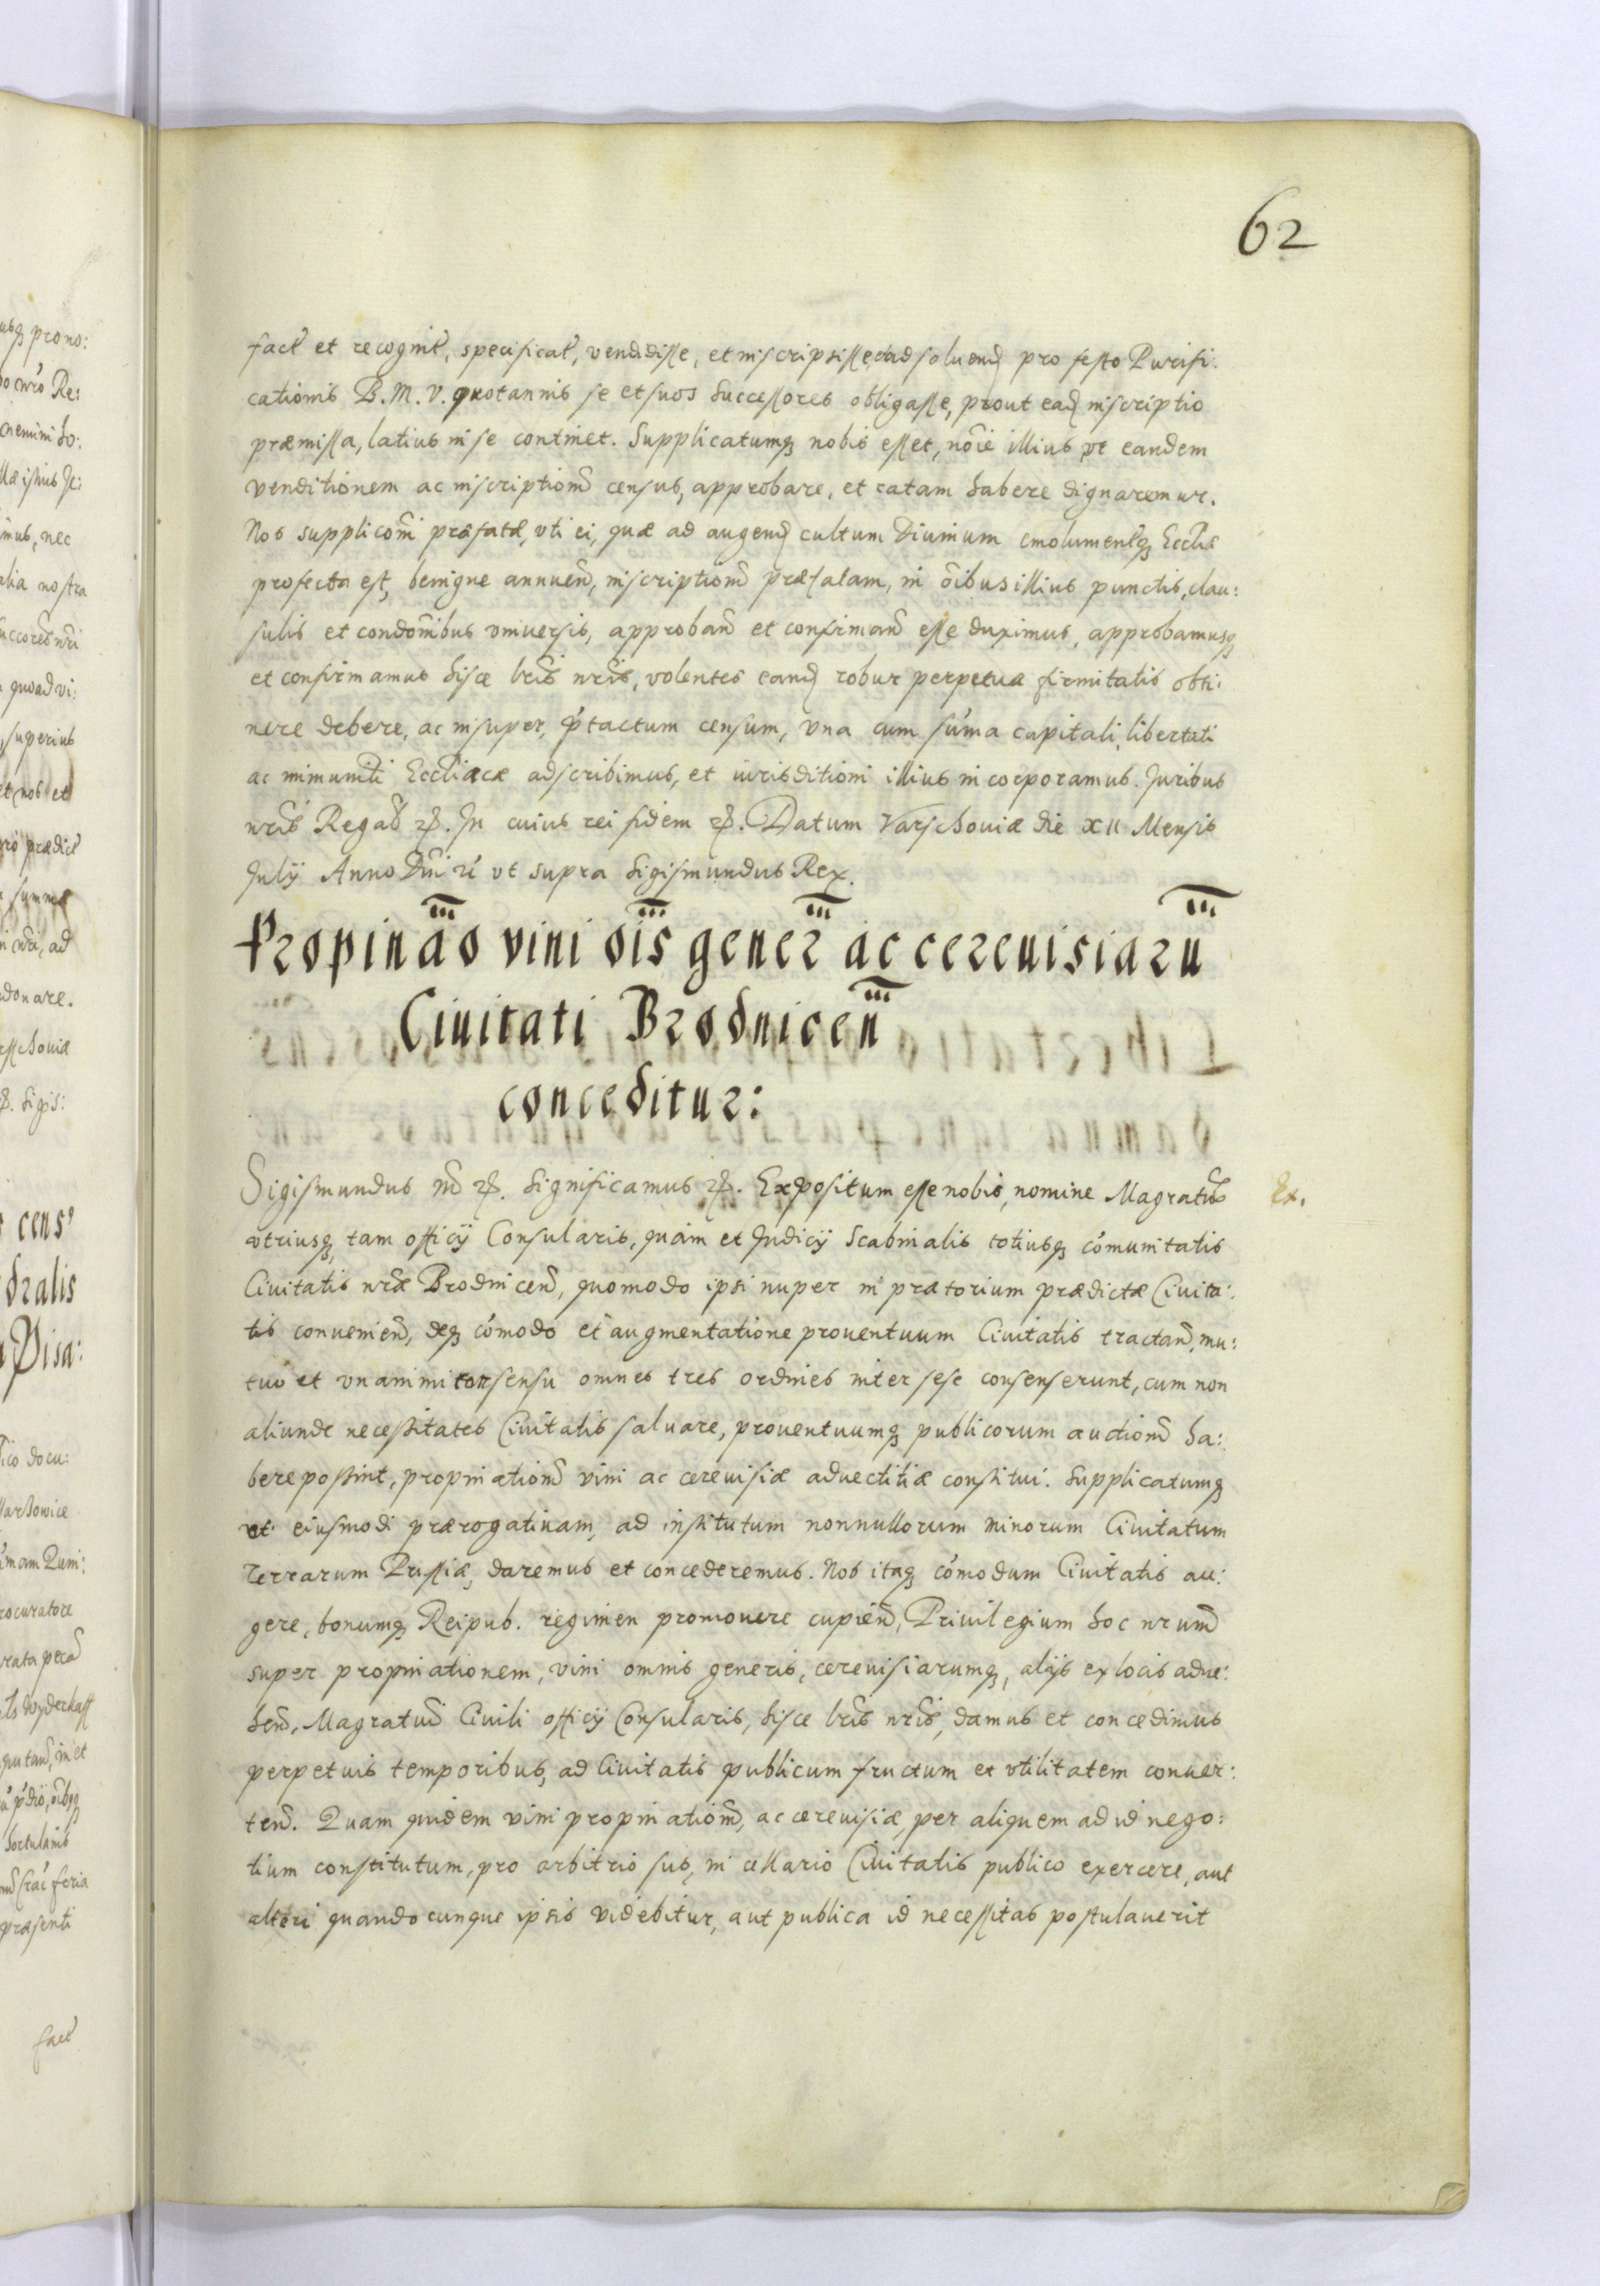 62
fact et recognit, specificat, vendidisse, et inscripsisse, ad soluend pro festo Purifi:
cationis B. M. V. quotannis se et suos successores obligasse, prout ead inscriptio
præmissa, latius in se continet. Supplicatumq nobis esset, noie illius vt eandem
venditionem ac inscriptiom census, approbare, et ratam habere dignaremur.
Nos suppliconi præfatæ, vti ei, quæ ad augend cultum Diuinum emolumentq Eccliæ
profecta est, benigne annuen, inscriptiom præfatam, in oibus illius punctis, clau:
sulis et condonibus vniuersis, approband et confirmand esse duximus, approbamusq
et confirmamus hisce lris nris, volentes eand robur perpetuæ firmitatis obti:
nere debere, ac insuper, ptactum censum, vna cum suma capitali, libertati
ac immuniti Eccliacæ adscribimus, et iurisditioni illius incorporamus. Juribus
nris Regal etc. In cuius rei fidem etc. Datum Varschouiæ die XII Mensis
Julij Anno Dni vt supra Sigismundus Rex.
Propinao vini ois gener ac cereuisiaru
Ciuitati Brodnicen
conceditur:
Sigismundus etc. Significamus etc. Expositum esse nobis, nomine Magratus
Ex.
vtriusq tam officij Consularis, quam et Judicij Scabinalis totiusq comunitatis
Ciuitatis nræ Brodnicen, quomodo ipsi nuper in prætorium prædictæ Ciuita:
tis conuenien, deq comodo et augmentatione prouentuum Ciuitatis tractan, mu:
tuo et vnanimi consensu omnes tres ordines inter sese consenserunt, cum non
aliunde necessitates Ciuitatis saluare, prouentuumq publicorum auctiom ha:
bere possint, propinatiom vini ac cereuisiæ aduectitiæ constitui. Supplicatumq
vt eiusmodi prærogatiuam, ad institutum nonnullorum minorum Ciuitatum
Terrarum Prussiæ, daremus et concederemus. Nos itaq comodum Ciuitatis au:
gere, bonumq Reipub. regimen promouere cupien, Priuilegium hoc nrum
super propinationem, vini omnis generis, cereuisiarumq, alijs ex locis adue:
hen, Magratui Ciuili officij Consularis, hisce lris nris, damus et concedimus
perpetuis temporibus, ad Ciuitatis publicum fructum et vtilitatem conuer:
ten. Quam quidem vini propinatiom, ac cereuisiæ, per aliquem ad id nego:
tium constitutum, pro arbitrio suo, in cellario Ciuitatis publico exercere, aut
alteri quandocunque ipsis videbitur, aut publica id necessitas postulauerit